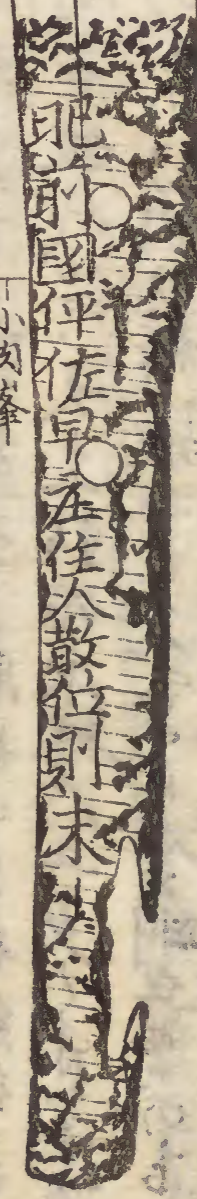 肥前國伊佐早庄住人散位則末
小肉峯